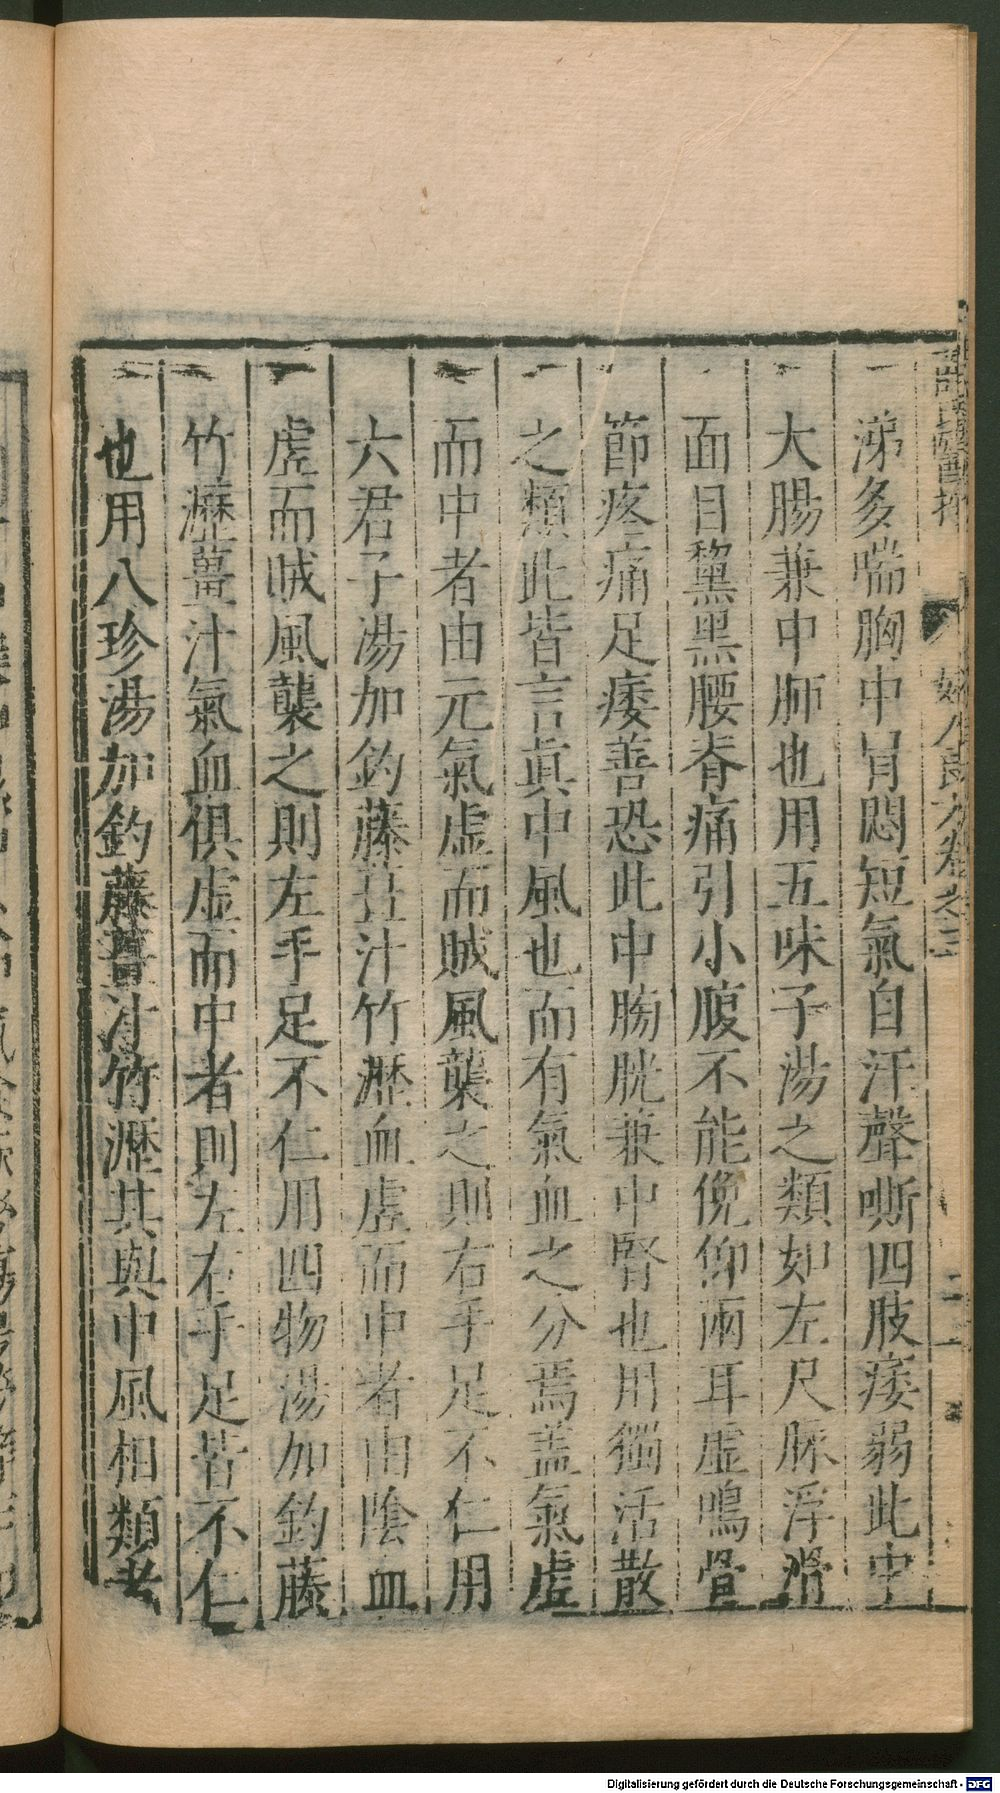 涕多喘胸中冐悶短氣自汗聲嘶四肢痿弱此中
大腸兼中肺也用五味子湯之類如左尺脉浮滑
面目黧黑腰脊痛引小腹不能俛仰兩耳虛鳴骨
節疼痛足痿善恐此中膀胱兼中腎也用獨活散
之類此皆言真中風也而有氣血之分焉蓋氣虛
而中者由元氣虛而賊風襲之則右手足不仁用
六君子湯加釣藤姜汁竹瀝血虛而中者由陰血
虛而賊風襲之則左手足不仁用四物湯加釣藤
竹瀝薑汁氣血俱虛而中者則左右手足皆不仁
也用八珍湯加釣藤薑汁竹瀝其與中風相類者
婦人良方卷之三
二十一
Digitalisierung gefördert durch die Deutsche Forschungsgemeinschaft - DFG